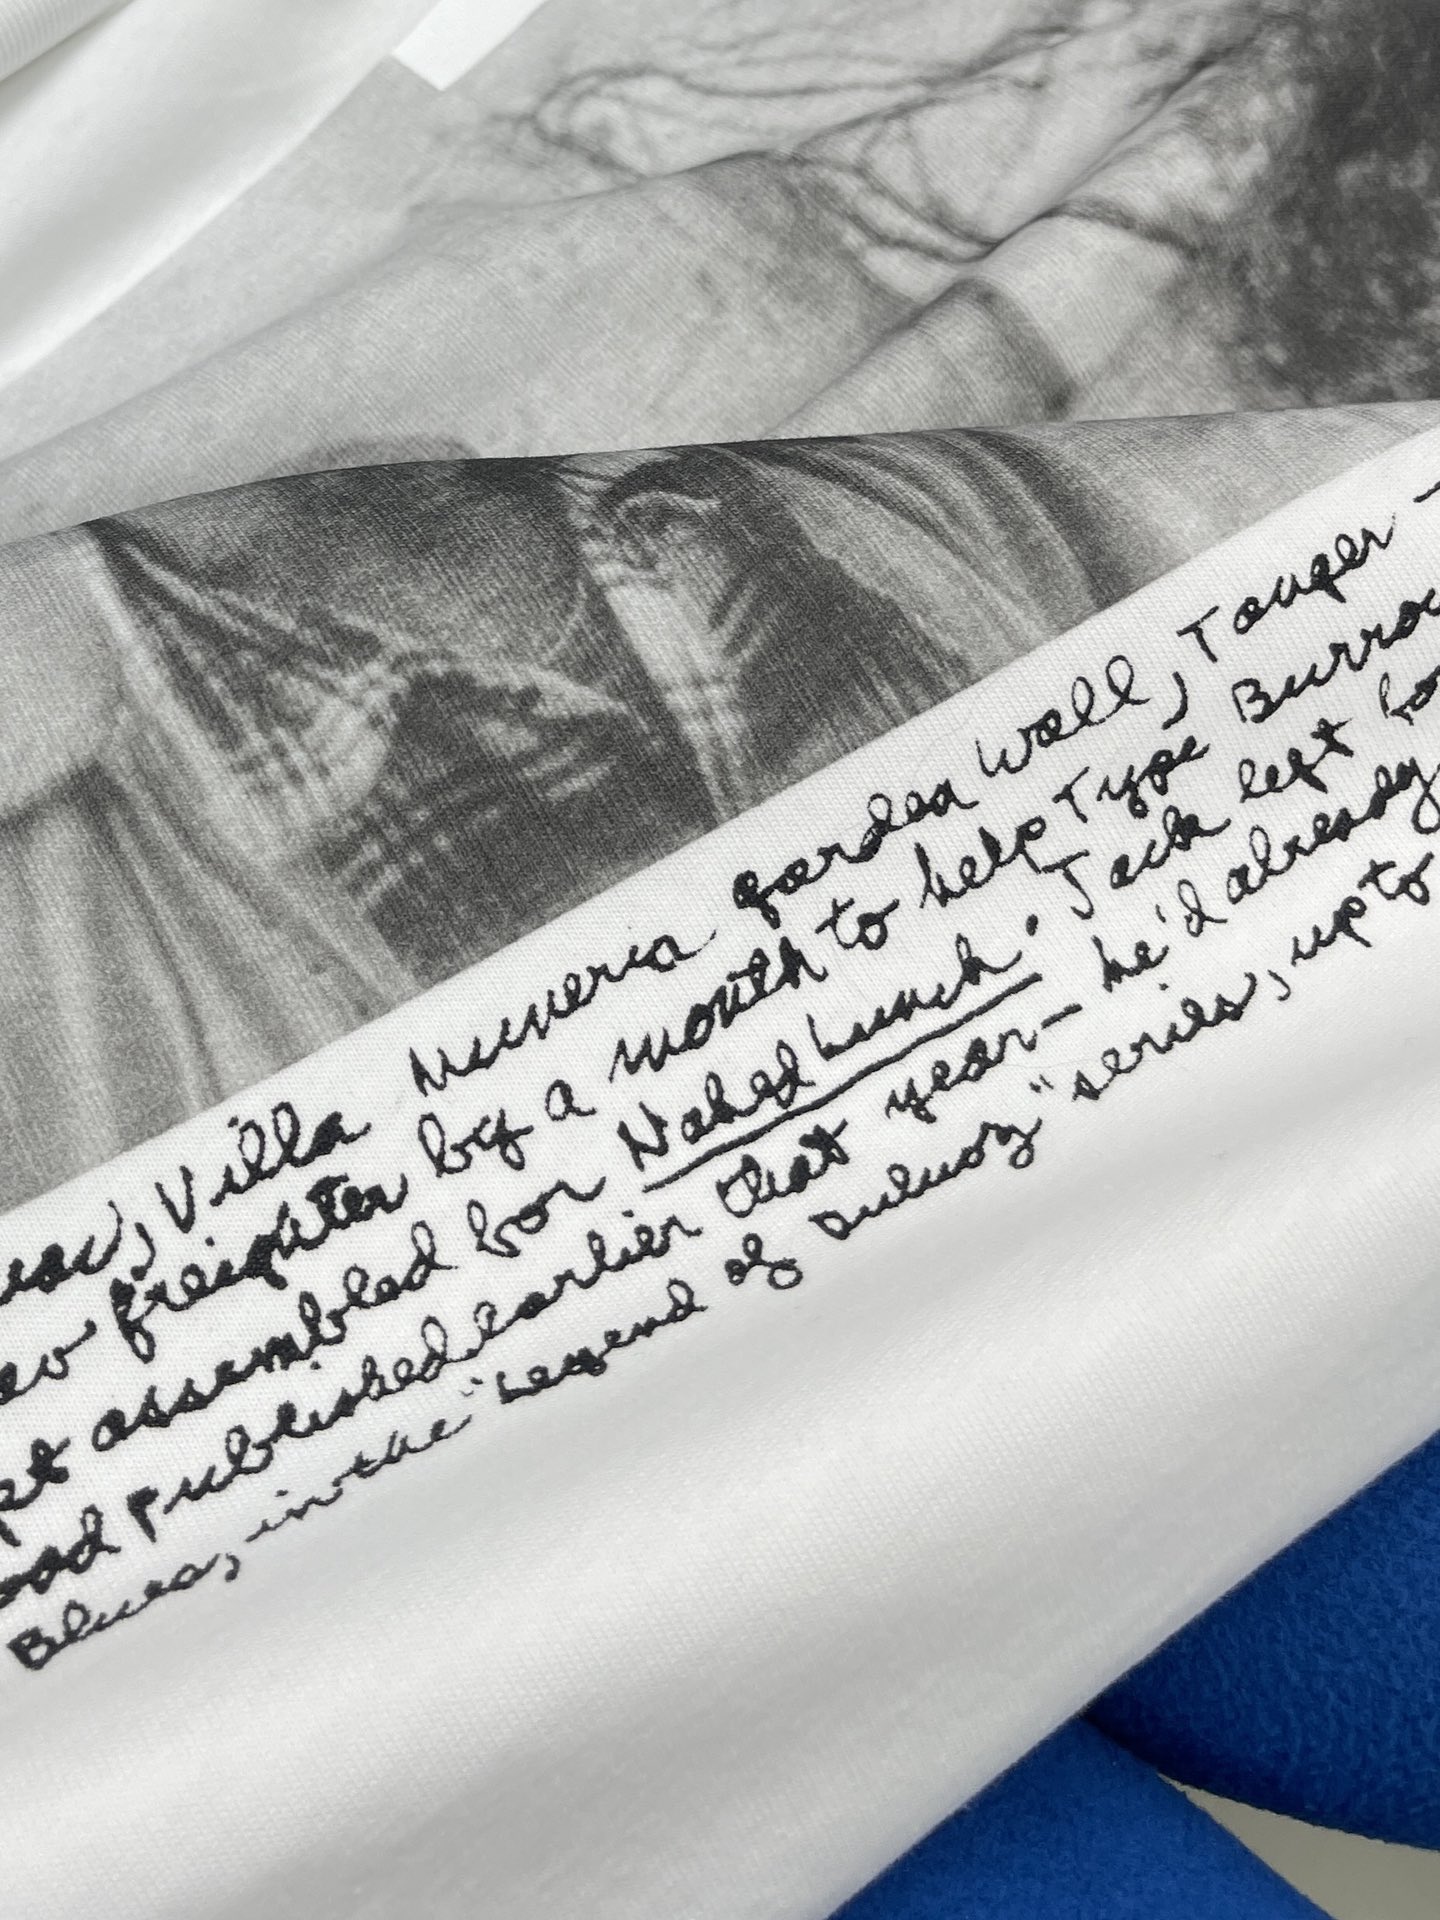 Villa Muneria garden wall, Tanger -
freighter by a month to help type
assembled for Naked Lunch. Jack left
published earlier that year - he'd already
Blues, in the "Legend of Duluoz" series, up to